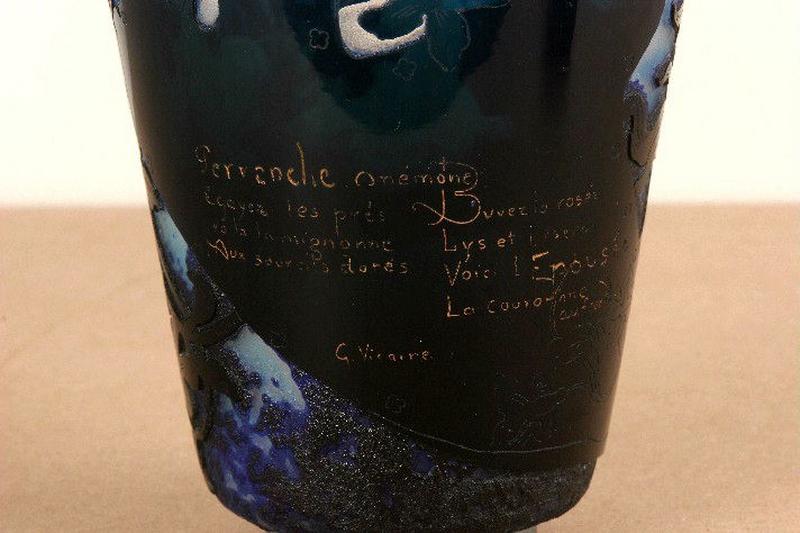 Pervenche Anémone
Égayez les prés
Voilà la mignonne
Aux sourcils dorés
Buvez la rosée
Lys et
Voici l'Épousée
La couronne
G. Vicaire